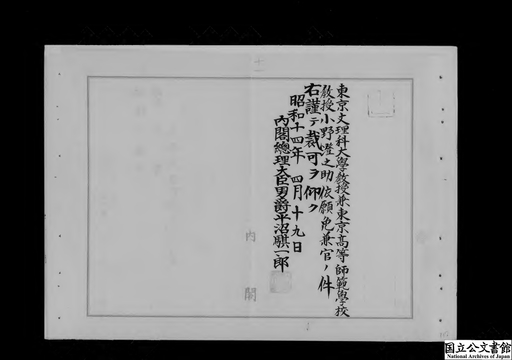 東京文理科大學教授兼東京高等師範學校
教授小野澄之助依願免兼官ノ件
右謹テ裁可ヲ仰ク
昭和十四年四月十九日
內閣總理大臣男爵平沼騏一郎
內閣
国立公文書館
National Archives of Japan